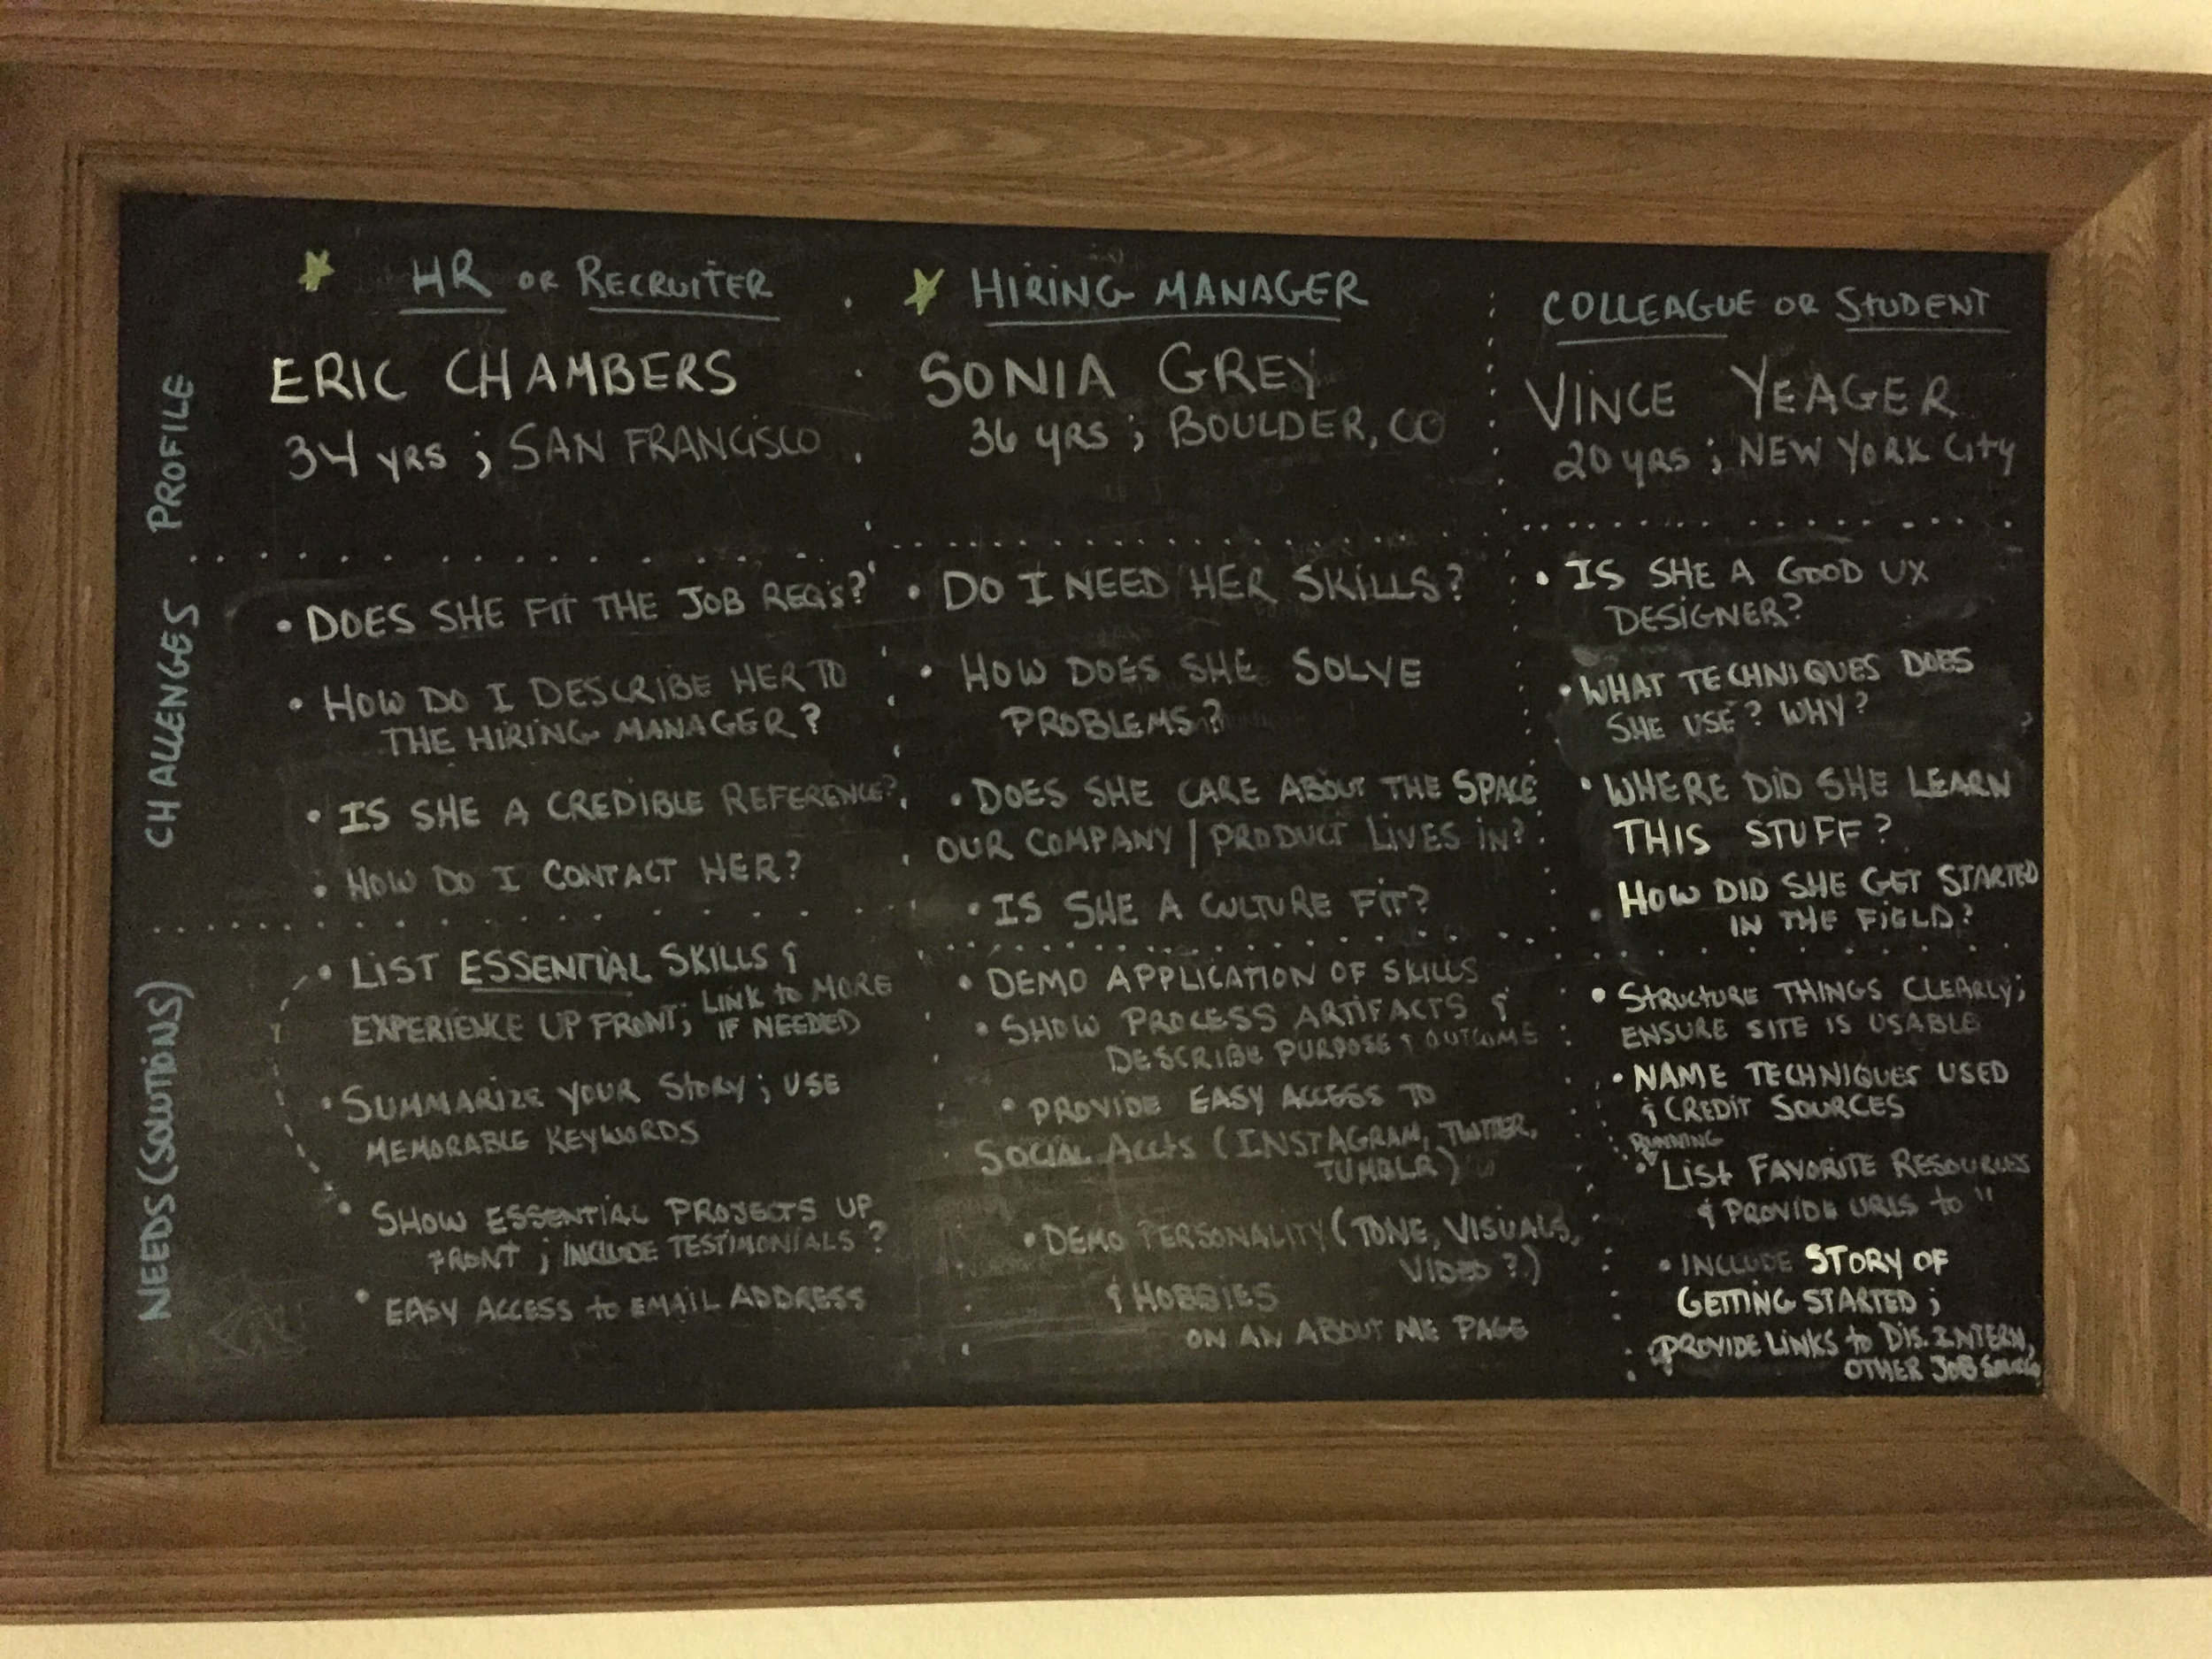 HR OR RECRUITER
ERIC CHAMBERS
34 YRS ; SAN FRANCISCO
HIRING MANAGER
SONIA GREY
36 YRS ; BOULDER, CO
COLLEAGUE OR STUDENT
VINCE YEAGER
20 YRS ; NEW YORK CITY
PROFILE
CHALLENGES
• DOES SHE FIT THE JOB REQ'S?
• HOW DO I DESCRIBE HER TO
THE HIRING MANAGER?
• IS SHE A CREDIBLE REFERENCE?
• HOW DO I CONTACT HER?
• DO I NEED HER SKILLS?
• HOW DOES SHE SOLVE
PROBLEMS?
• DOES SHE CARE ABOUT THE SPACE
OUR COMPANY | PRODUCT LIVES IN?
• IS SHE A CULTURE FIT?
• IS SHE A GOOD UX
DESIGNER?
• WHAT TECHNIQUES DOES
SHE USE? WHY?
• WHERE DID SHE LEARN
THIS STUFF?
• HOW DID SHE GET STARTED
IN THE FIELD?
NEEDS (SOLUTIONS)
• LIST ESSENTIAL SKILLS &
EXPERIENCE UP FRONT; LINK TO MORE
IF NEEDED
• SUMMARIZE YOUR STORY ; USE
MEMORABLE KEYWORDS
• SHOW ESSENTIAL PROJECTS UP
FRONT ; INCLUDE TESTIMONIALS ?
• EASY ACCESS TO EMAIL ADDRESS
• DEMO APPLICATION OF SKILLS
• SHOW PROCESS ARTIFACTS &
DESCRIBE PURPOSE & OUTCOME
• PROVIDE EASY ACCESS TO
SOCIAL ACCTS (INSTAGRAM, TWITTER,
TUMBLR)
• DEMO PERSONALITY (TONE, VISUALS,
VIDEO ?)
& HOBBIES
ON AN ABOUT ME PAGE
• STRUCTURE THINGS CLEARLY;
ENSURE SITE IS USABLE
• NAME TECHNIQUES USED
& CREDIT SOURCES
RUNNING
• LIST FAVORITE RESOURCES
& PROVIDE URLS TO "
• INCLUDE STORY OF
GETTING STARTED ;
PROVIDE LINKS TO DIS. INTERN,
OTHER JOB